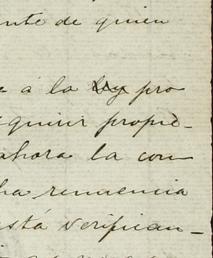 nte de quien
e á la pro
quirir propie-
ahora la con
ha renuencia
stá verifican-